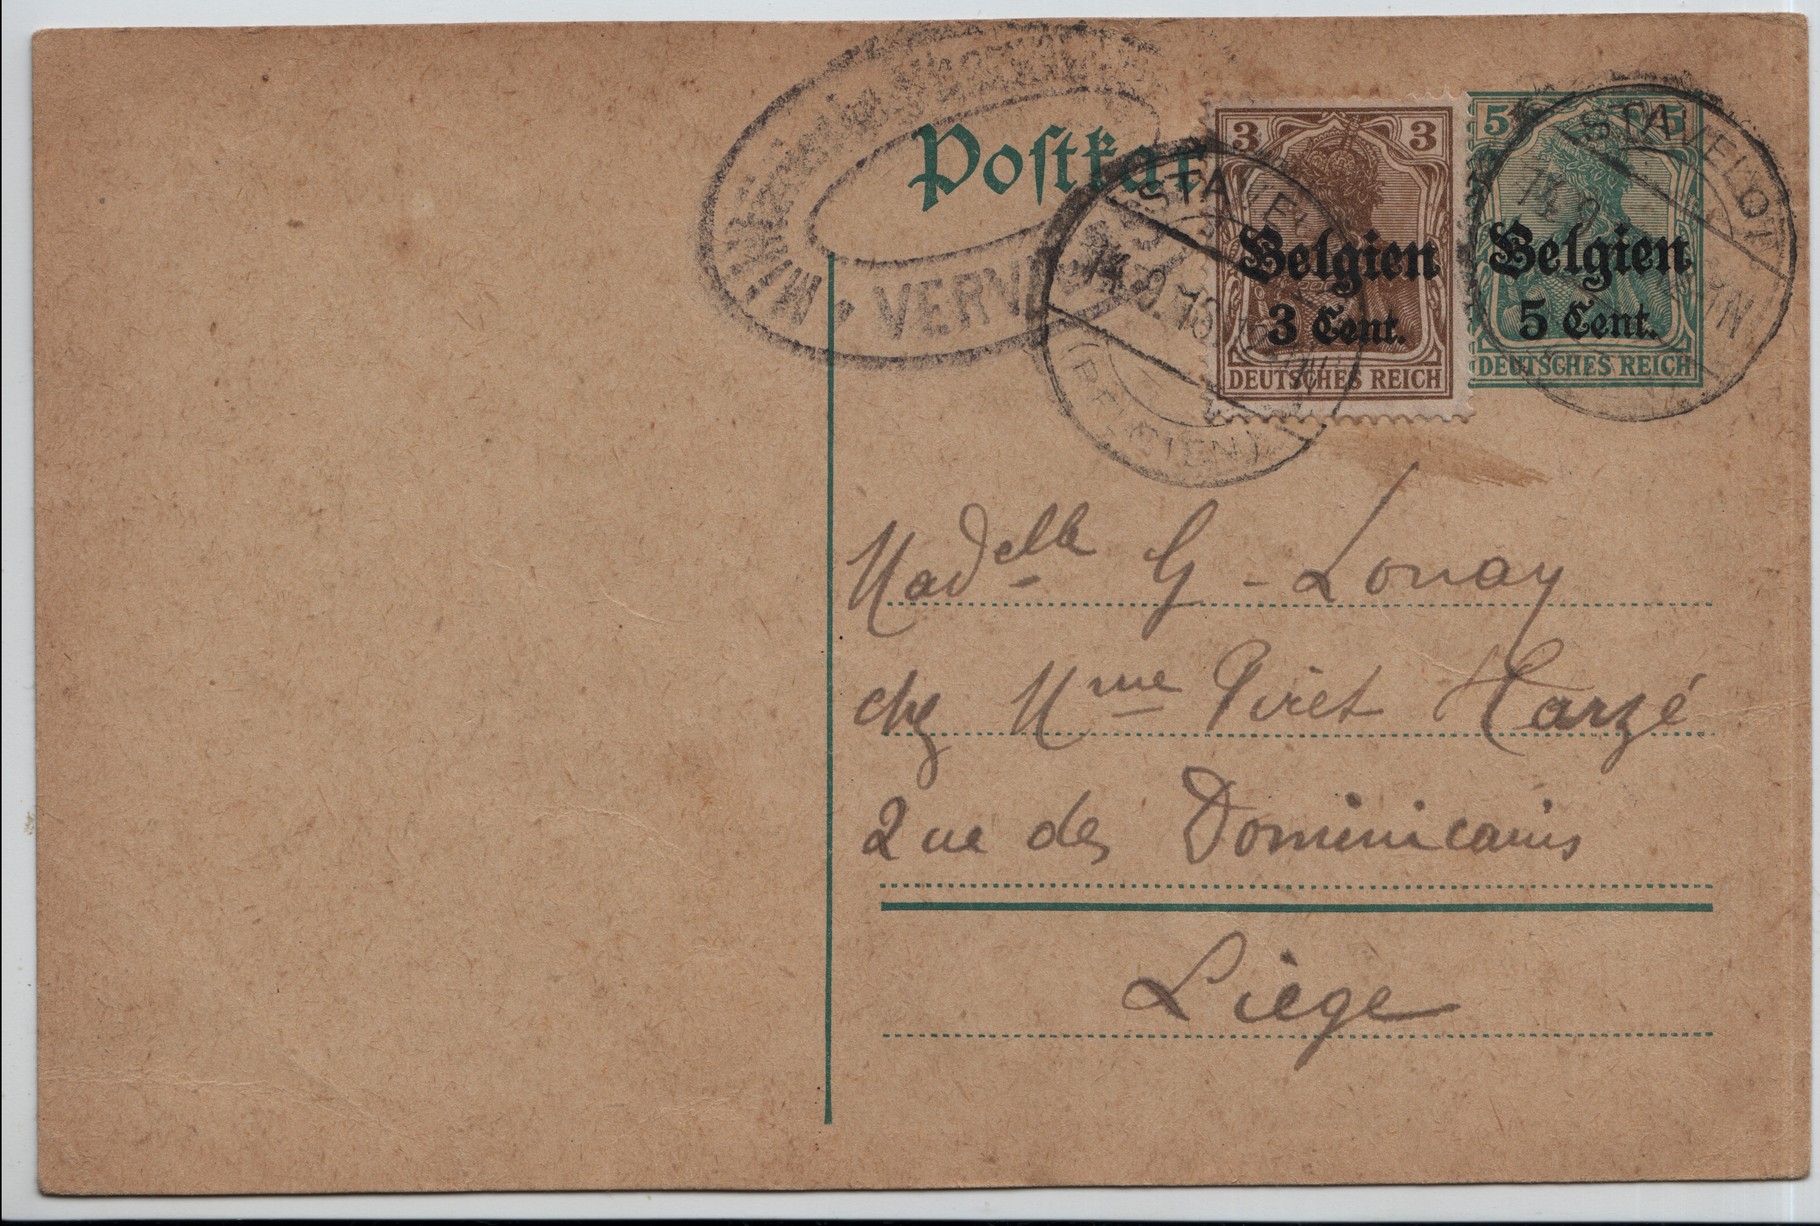 Postkar
3 3
Belgien
3 Cent.
DEUTSCHES REICH
5 5
Belgien
5 Cent.
DEUTSCHES REICH
STAVELOT
14.9.
STAVEL
14.9.
(BELGIEN)
Madelle G - Lonay
chez Mme Piret Harzé
Rue des Dominicains
Liège